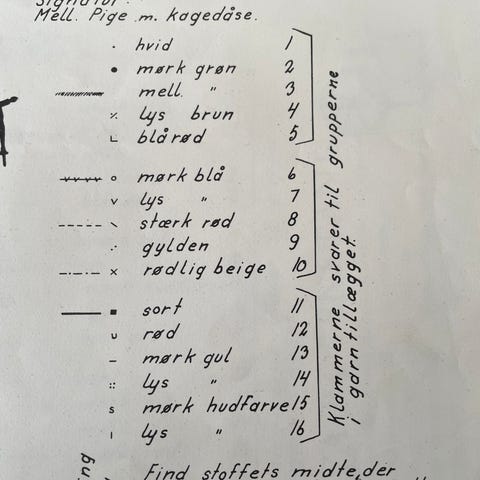 Signatur:
Mell. Pige m. kagedåse.
· hvid 1
● mørk grøn 2
mell. " 3
٪ lys brun 4
∟ blårød 5
o mørk blå 6
v lys " 7
\ stærk rød 8
∴ gylden 9
x rødlig beige 10
■ sort 11
u rød 12
– mørk gul 13
:: lys " 14
s mørk hudfarve 15
ı lys " 16
Klammerne svarer til grupperne
i garntillægget.
Find stoffets midte, der